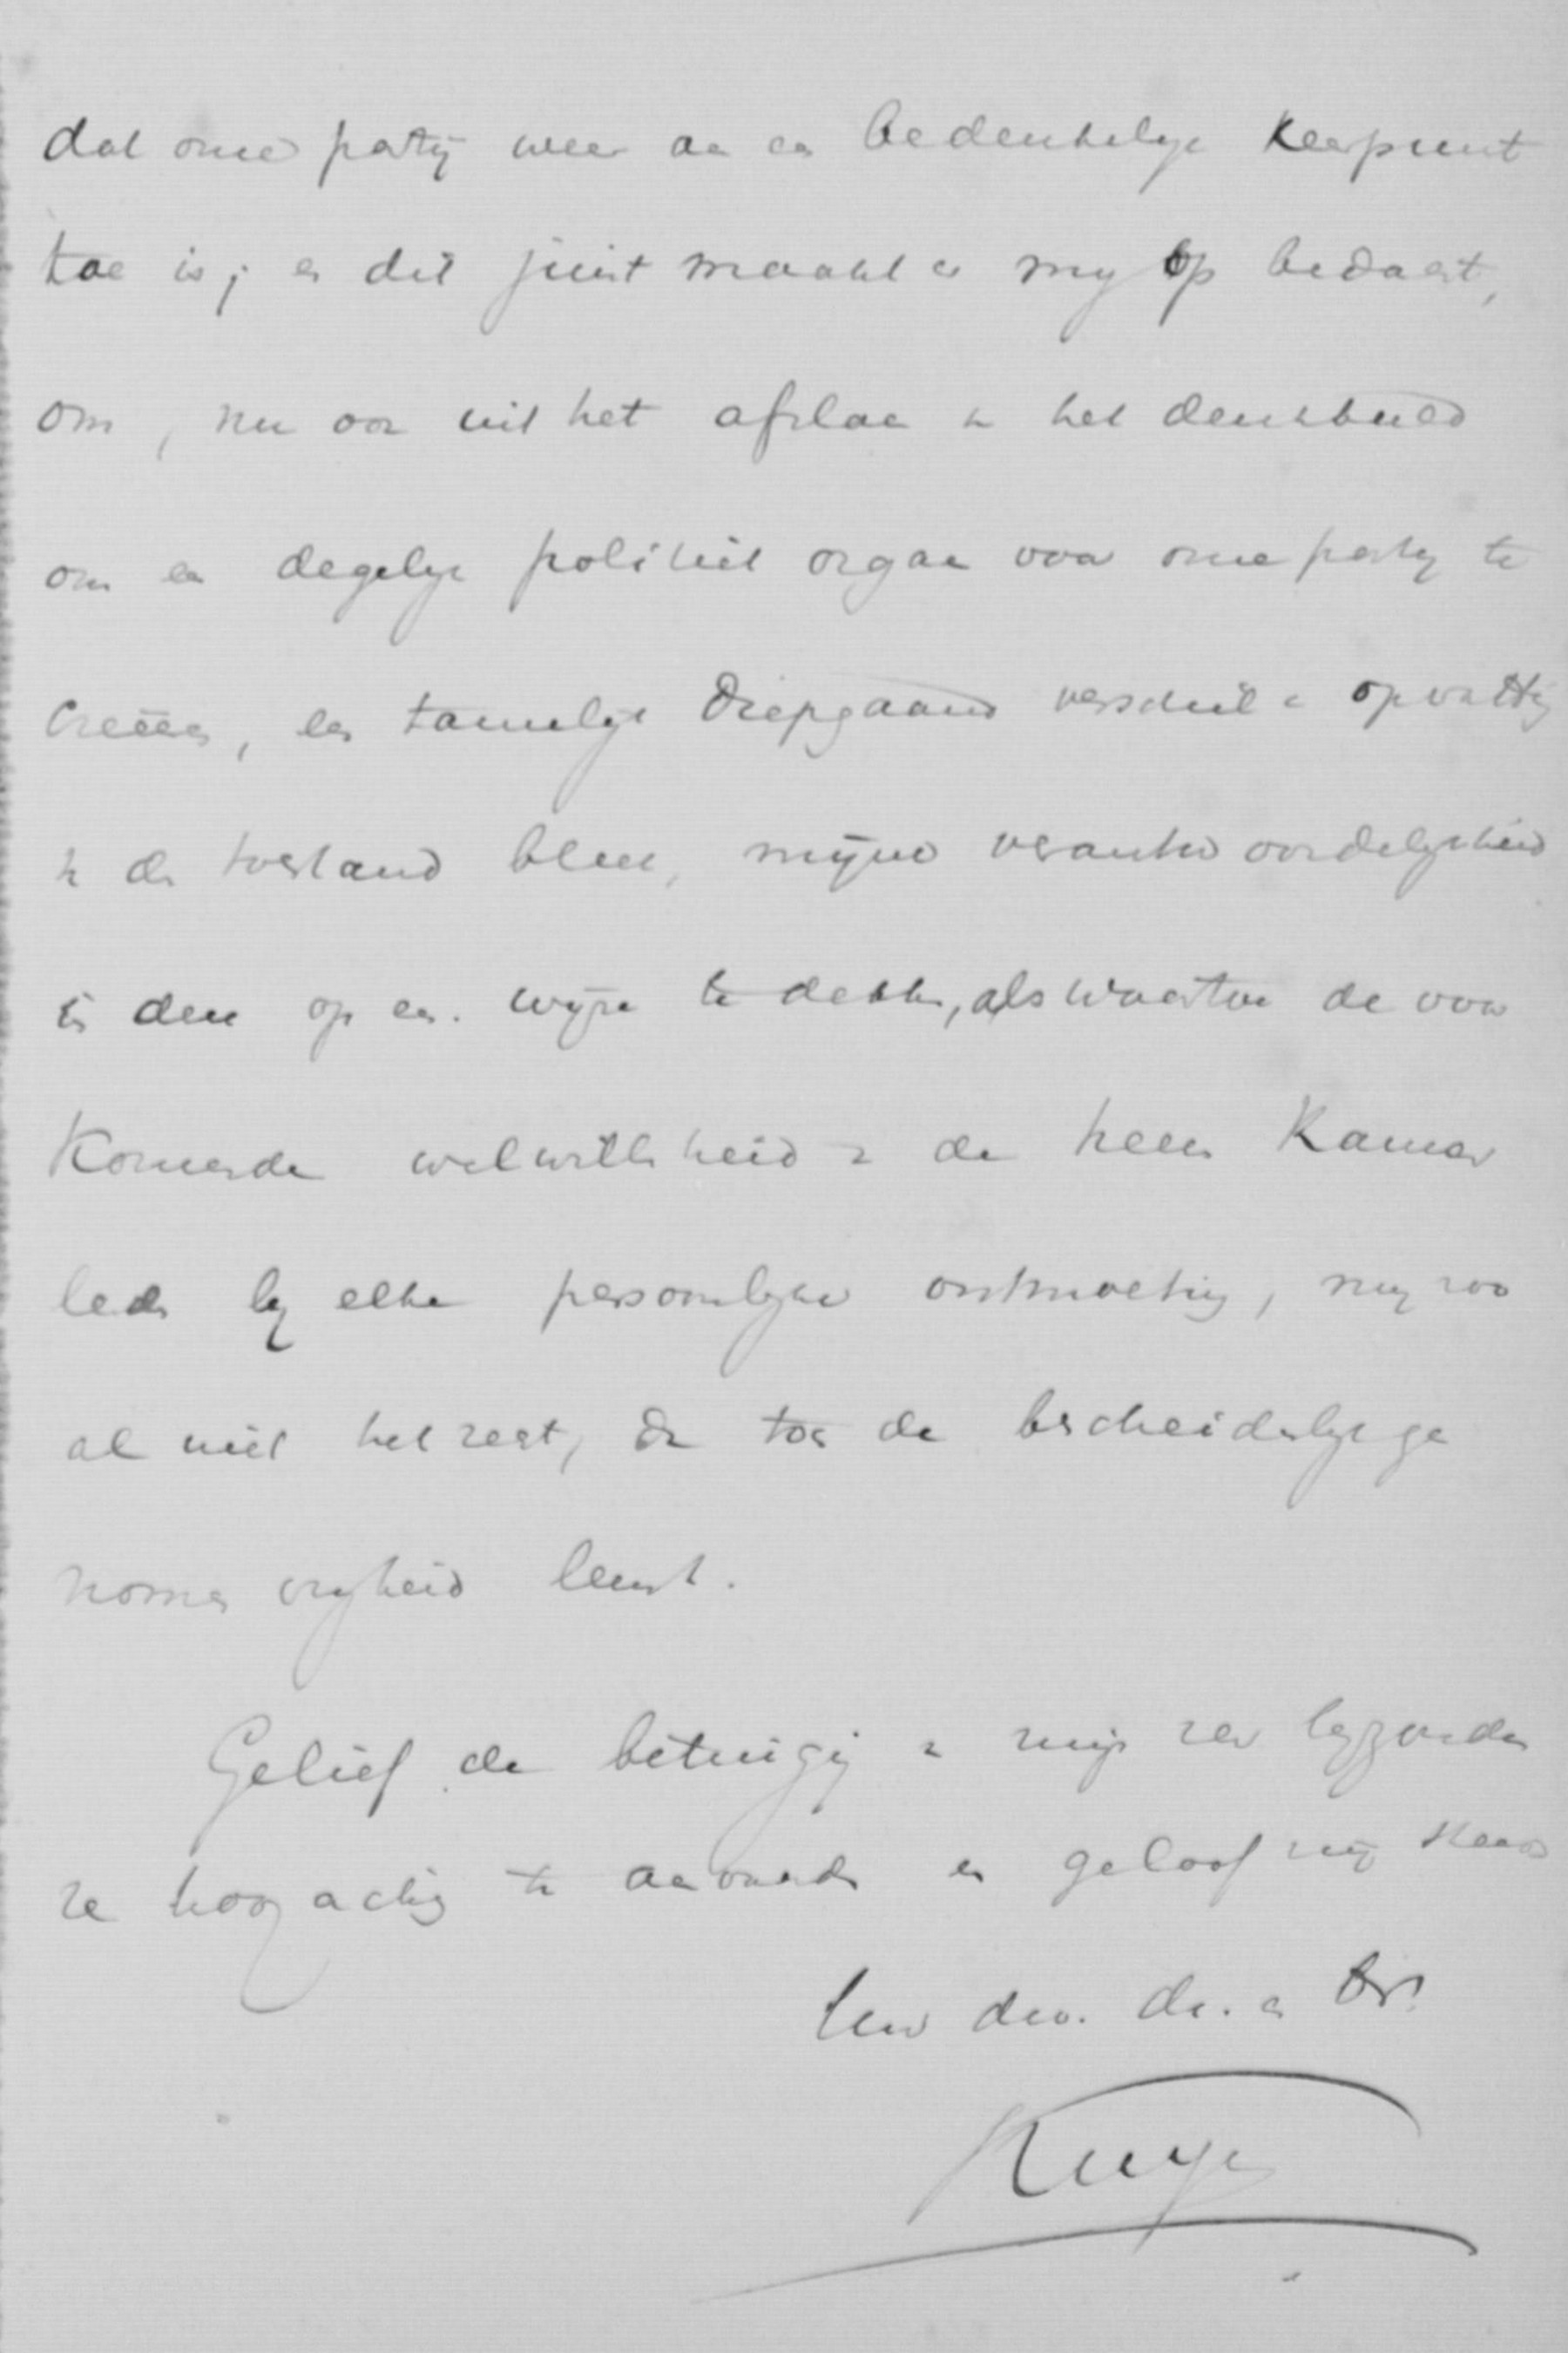 dat onze partij weer aan een bedenkelijk keerpunt
toe is; en dit juist maakte er mij op bedacht,
om, nu ook uit het afslaan van het denkbeeld
om een degelijk politiek orgaan voor onze partij te
creëeren, een tamelijk diepgaand verschil in opvatting
van den toestand bleek, mijne verantwoordelijkheid
in deze op een wijze te dekken, als waartoe de voor
komende welwillendheid van de heeren Kamer
leden bij elke persoonlijke ontmoeting, mij zoo
al niet het recht, dan toch de bescheidenlijk ge
nomen vrijheid leent.
Gelief de betuiging van mijn zeer bijzonde
re hoogachting te aanvaarden en geloof mij steeds
Uw dw. dr. en br.
Kuyper